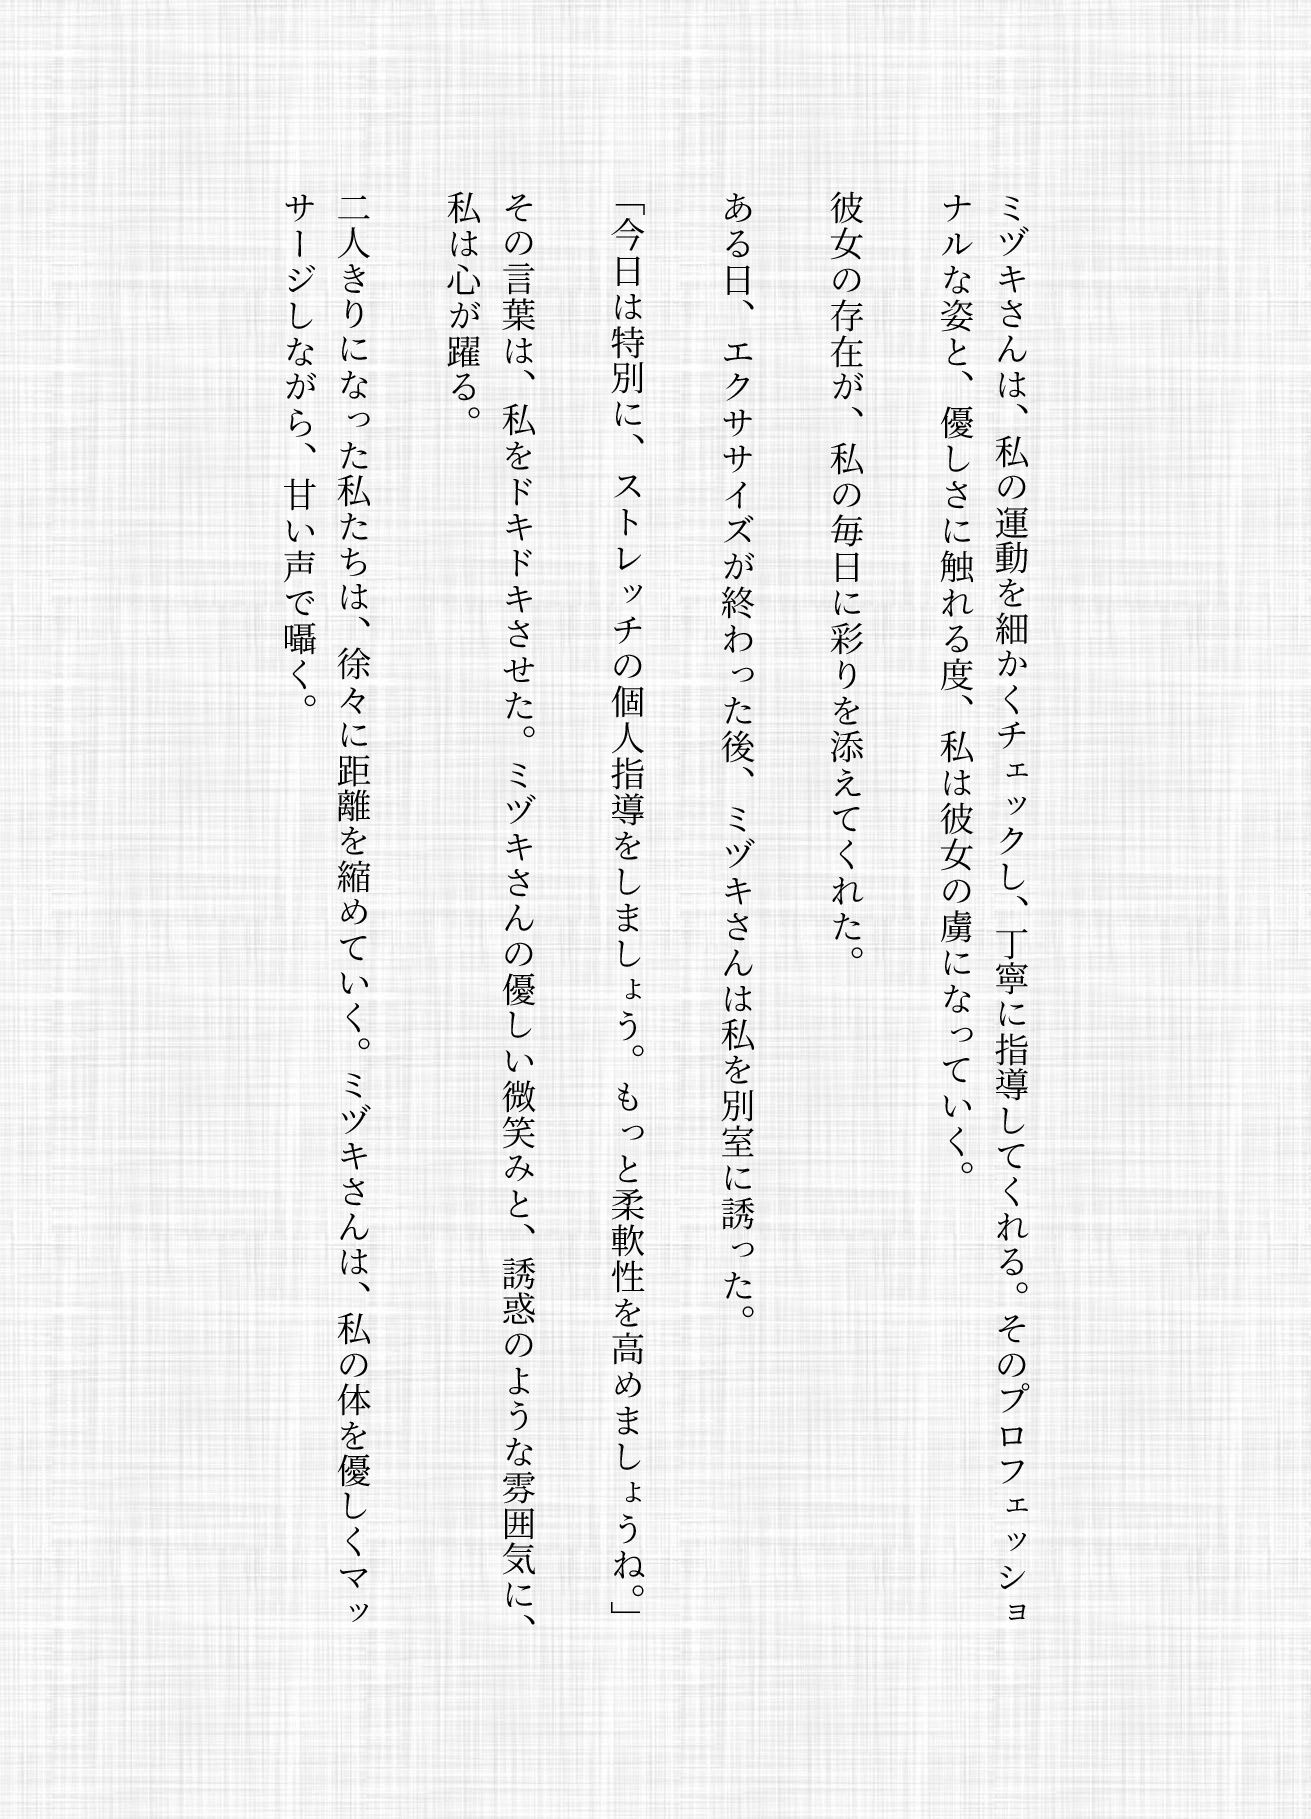 ミヅキさんは、私の運動を細かくチェックし、丁寧に指導してくれる。そのプロフェッショ
ナルな姿と、優しさに触れる度、私は彼女の虜になっていく。
彼女の存在が、私の毎日に彩りを添えてくれた。
ある日、エクササイズが終わった後、ミヅキさんは私を別室に誘った。
「今日は特別に、ストレッチの個人指導をしましょう。もっと柔軟性を高めましょうね。」
その言葉は、私をドキドキさせた。ミヅキさんの優しい微笑みと、誘惑のような雰囲気に、
私は心が躍る。
二人きりになった私たちは、徐々に距離を縮めていく。ミヅキさんは、私の体を優しくマッ
サージしながら、甘い声で囁く。